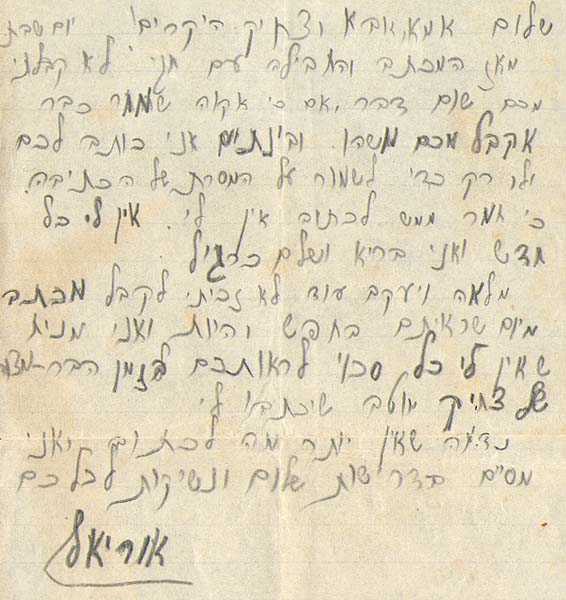 שלום אמא, אבא וצחיק היקרים! יום שבת
מאז המכתב והחבילה עם חני לא קבלתי
מכם שום דבר, אם כי אקוה שמחר כבר
אקבל מכם משהו. ובינתיים אני כותב לכם
ולו רק כדי לשמור על המסורת של הכתיבה.
כי חמר ממש לכתוב אין לי. אין לי כל
חדש ואני בריא ושלם כרגיל.
מלאה ויעקב עוד לא זכיתי לקבל מכתב
מיום שראיתם בחפש והיות ואני מניח
שאין לי כל סכוי לראותכם בזמן הבר-מצוה
של צחיק מוטב שיכתבו לי.
נדמה שאין יותר מה לכתוב ואני
מסיים בדרישות שלום ונשיקות לכלכם
אוריאל